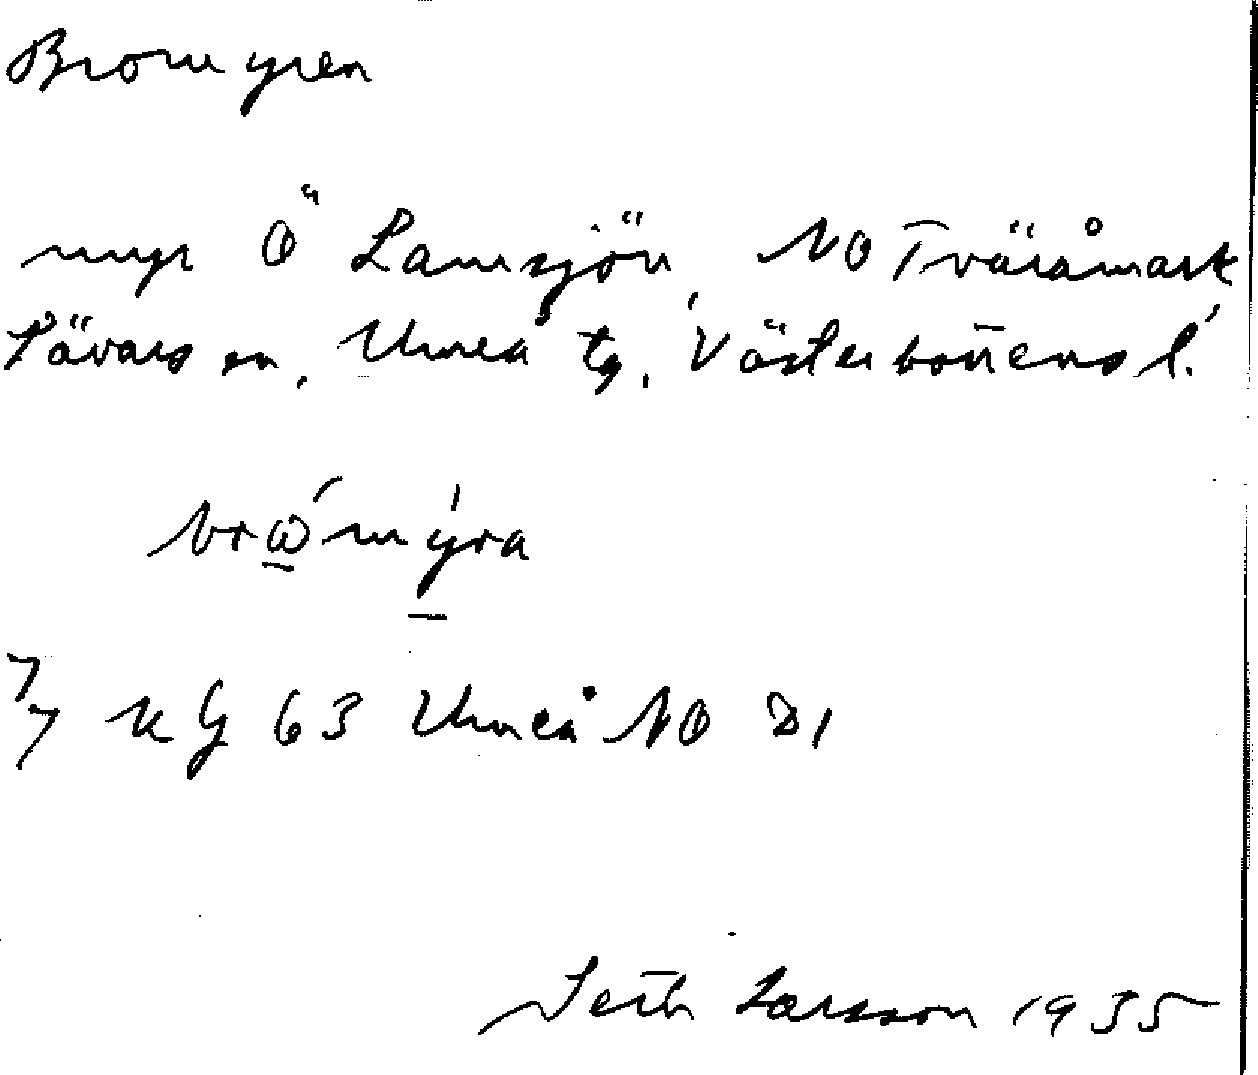 Bromyren
myr Ö Lamsjön, NO Tväråmark
Sävars sn, Umeå tg, Västerbottens l.
brωmyra
7/7 KG 63 Umeå NO D1
Seth Larsson 1935